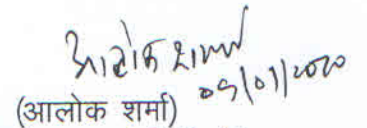 आलोक शर्मा
09/01/2020
(आलोक शर्मा)